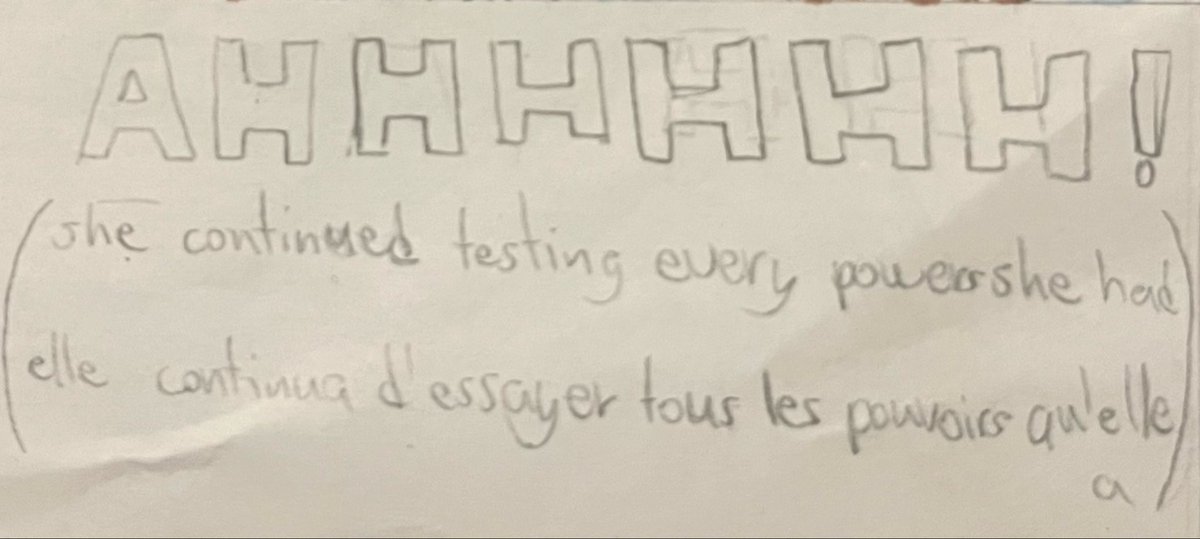 AHHHHHH!
(she continued testing every powers she had
elle continua d'essayer tous les pouvoirs qu'elle
a)